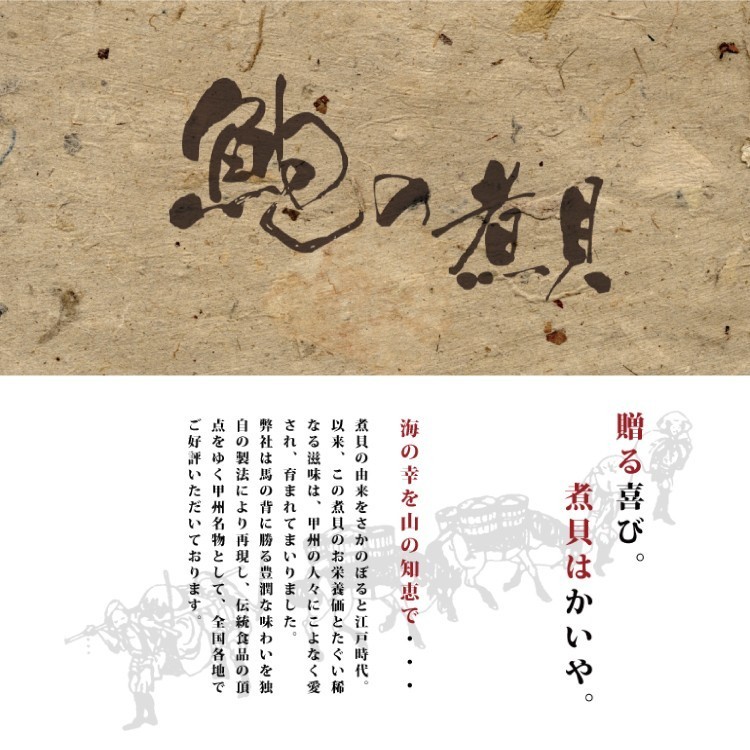 鮑の煮貝
贈る喜び。
煮貝はかいや。
海の幸を山の知恵で・・・
煮貝の由来をさかのぼると江戸時代。
以来、この煮貝のお栄養価とたぐい稀
なる滋味は、甲州の人々にこよなく愛
され、育まれてまいりました。
弊社は馬の背に勝る豊潤な味わいを独
自の製法により再現し、伝統食品の頂
点をゆく甲州名物として、全国各地で
ご好評いただいております。